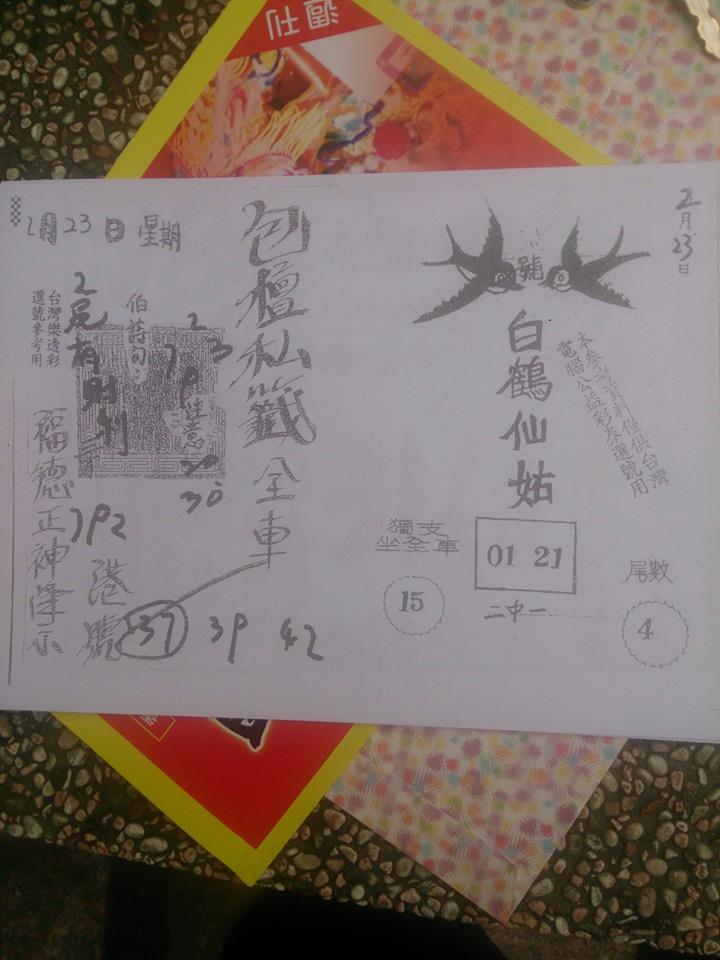 週刊
2月23日
號
白鶴仙姑
本參考資料僅供台灣
電腦公益彩券選號用
獨支
坐全車
15
01 21
二中一
尾數
4
2月23日 星期
包壇私籤全車
台灣樂透彩
選號參考用
福德正神降示
港號
37 39 42